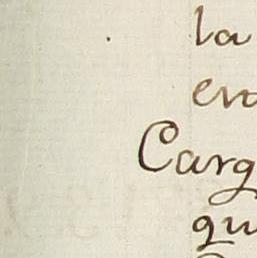 la
Carg
qu